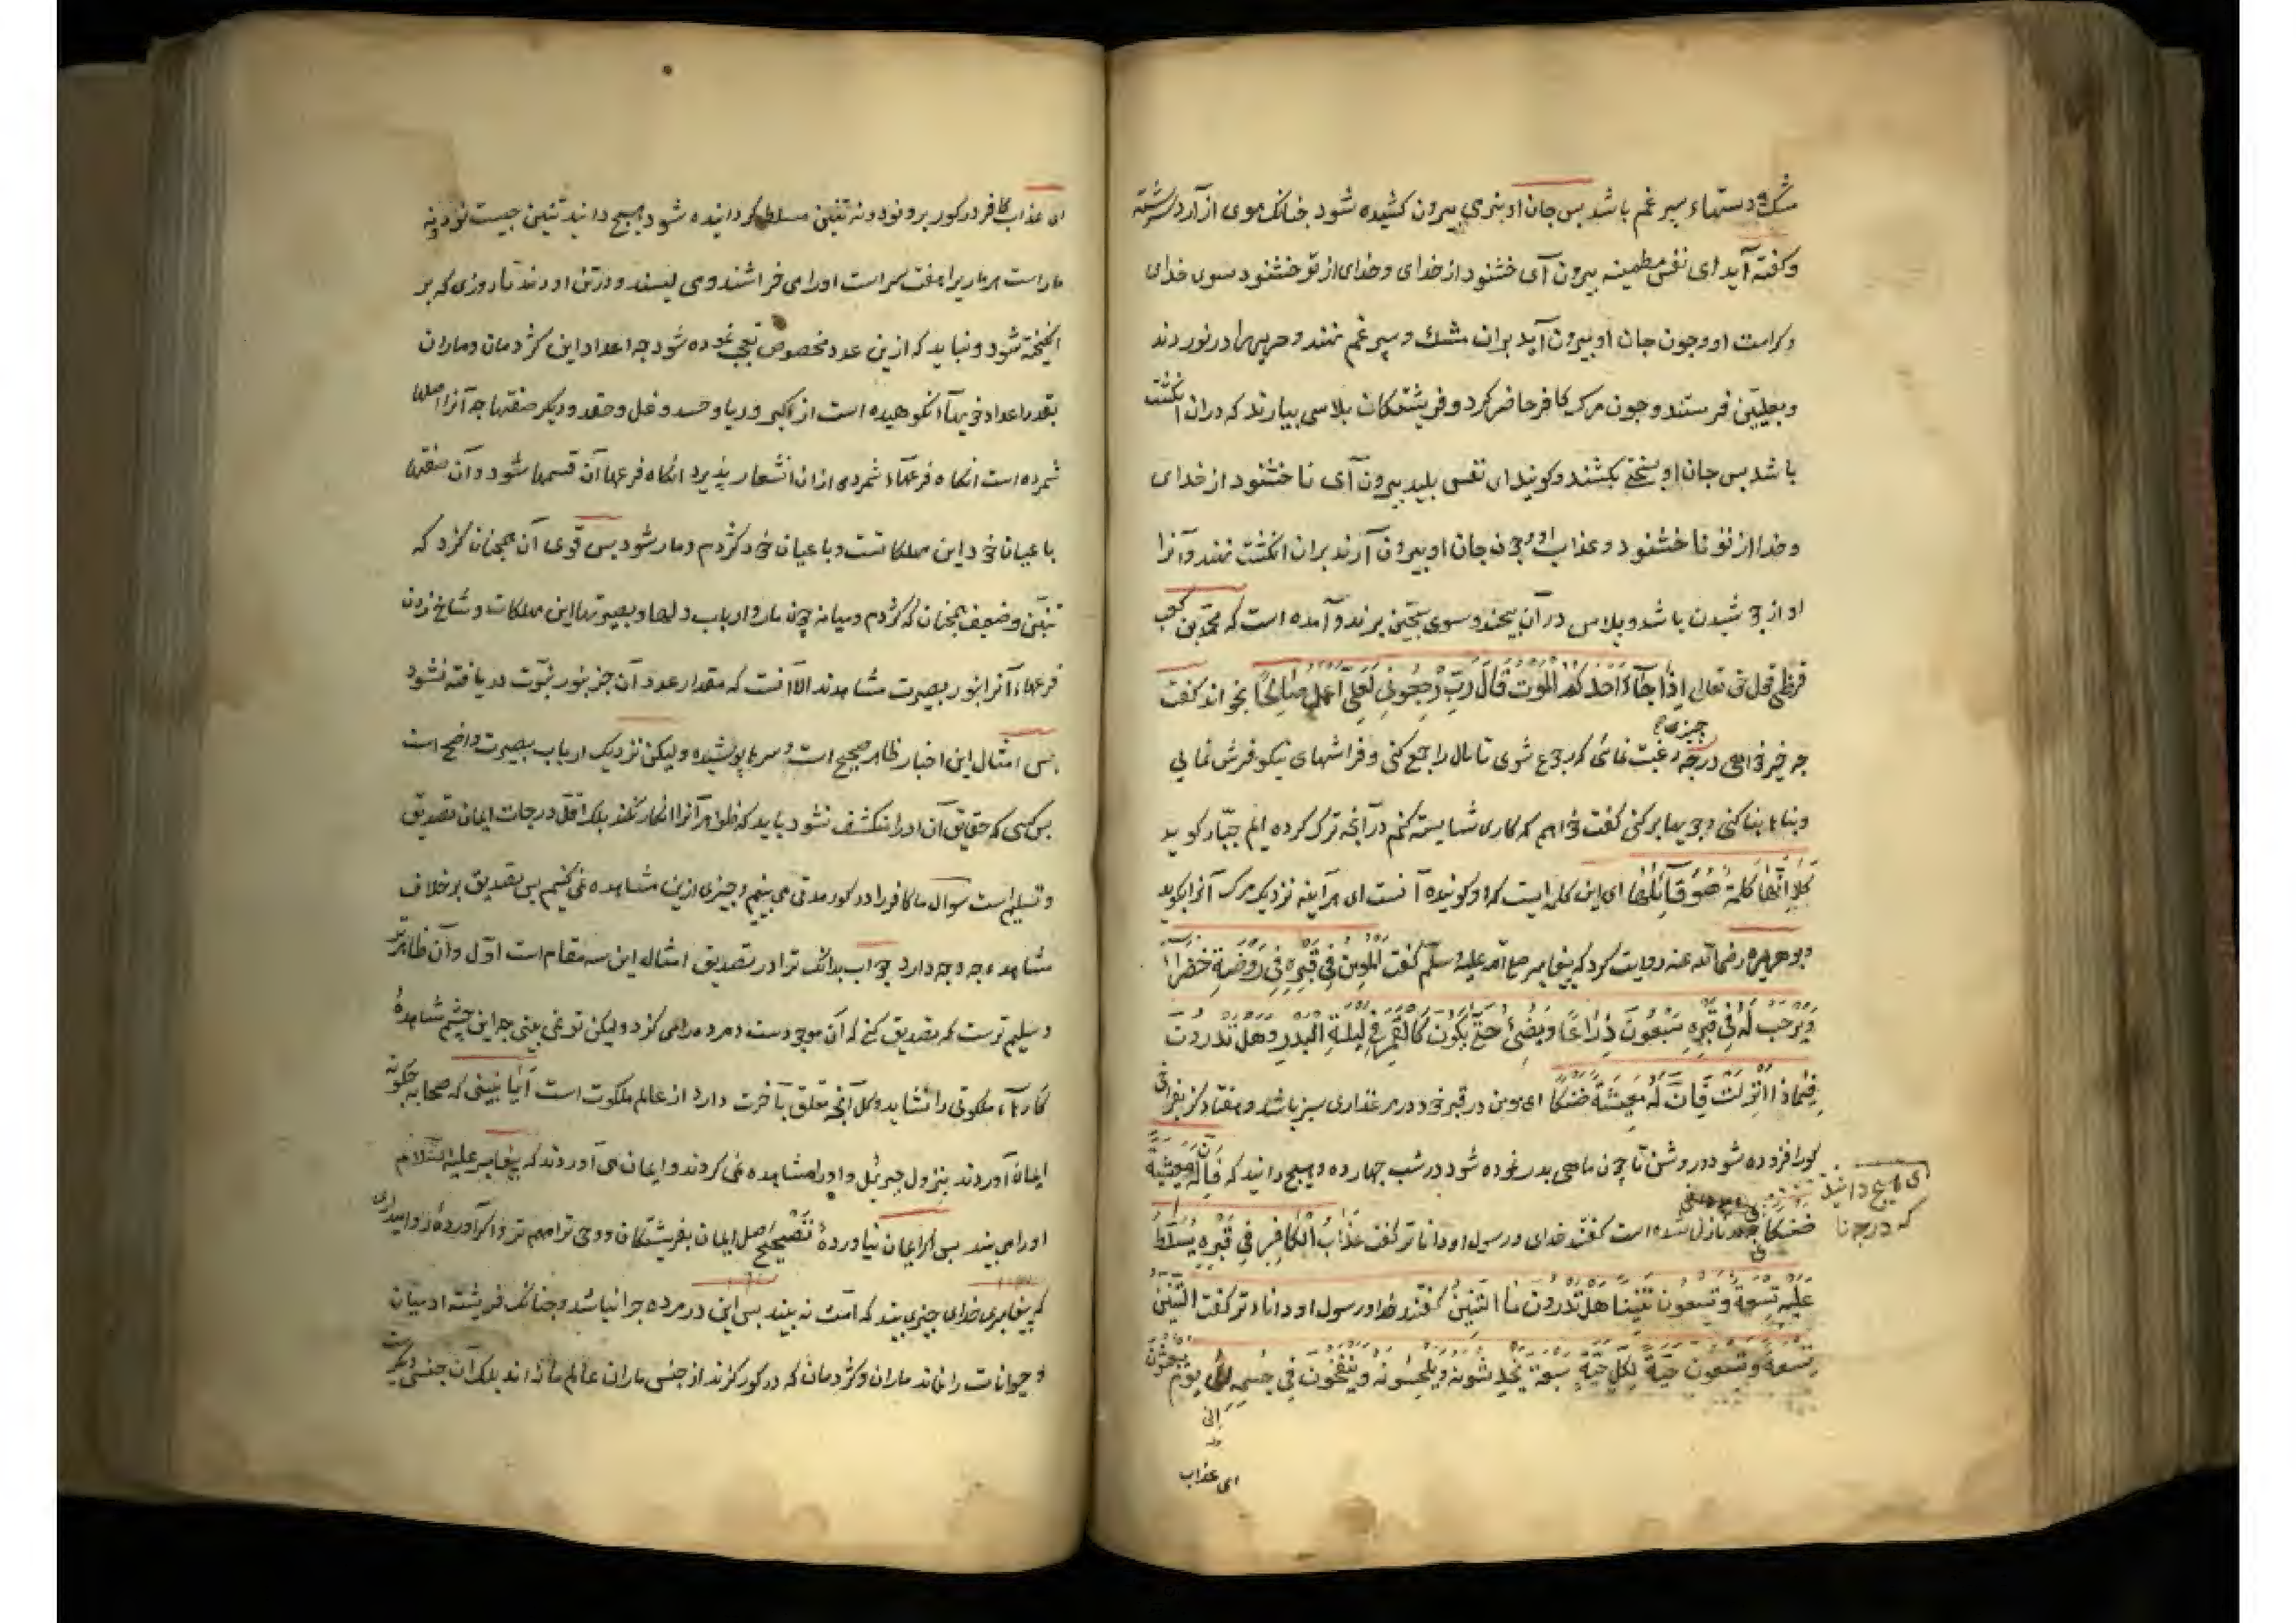 مشک و دستهاء سپرغم باشد بس جان او بنرمی بیرون کشیده شود جنانک موی از آرد سرشته
و کفته آید ای نفس مطمینه بیرون آی خشنود از خدای و خدای از تو خشنود سوی خدای
و کرامت او و جون جان او بیرون آید بران مشک و سپرغم نهند و حریرها در نوردند
و بعلیین فرستند و جون مرک کافر حاضر کردد فریشتکان بلاسی بیارند که دران انکشت
باشد بس جان او بسختی بکشند و کویند ای نفس بلید بیرون آی ناخشنود از خدای
و خدا از تو ناخشنود و عذاب او و جون جان او بیرون آرند بران انکشت نهند و آنرا
اواز جوشیدن باشد و بلاس در آن بیجند و سوی سجین برند و آمده است که محمد بن کعب
قرظی قول حق تعالی اِذَا جَآءَ اَحَدَكُمُ الْمَوْتُ قَالَ رَبِّ ارْجِعُونِ لَعَلِّی اَعْمَلُ صَالِحًا بخواند کفت
جه خیر خواهی در جه رغبت نمائی که رجوع شوی تا مال را جمع کنی و فراشهای نیکو فرش نمایی
جیزی؟
و بناها بنا کنی و جویها بر کنی کفت خواهم که کاری شایسته کنم در آنجه ترک کرده ایم جبّار کوید
کَلَّا اِنَّهَا کَلِمَةٌ هُوَ قَائِلُهَا ای این کلمه ایست که او کوینده آنست ای هر آینه نزدیک مرک آنرا بکوید
و بوهریره رضی الله عنه روایت کرد که پیغامبر صلی الله علیه و سلم کفت اَلْمُومِنُ فِی قَبْرِهِ فِی رَوْضَةٍ خَضْرَآءَ
وَیُرَحَّبُ لَهُ فِی قَبْرِهِ سَبْعُونَ ذِرَاعًا وَیُضِیٔ حَتّٰی یَکُونَ کَالْقَمَرِ فِی لَیْلَةِ الْبَدْرِ وَ هَلْ تَدْرُونَ
فِیمَا ذَا اُنْزِلَتْ فَاِنَّ لَهُ مَعِیشَةً ضَنْکًا ای مومن در قبر خود در مرغذاری سبز باشد و هفتاد کز بفراخی
کور افزوده شود و روشن تا جون ماهی بدر نموده شود در شب جهارده و هیج دانید که فَاِنَّ لَهُ مَعِیشَةً
ای هیج دانید
که درجنا
ضنکا جه نازل شده است کفتند خدای و رسول او داناتر کفت عَذَابُ الْکَافِرِ فِی قَبْرِهِ یُسَلَّطُ
عَلَیْهِ تِسْعَةٌ وَ تِسْعُونَ تِنِّینًا هَلْ تَدْرُونَ مَا التِّنِّینُ کفتند خدا و رسول او داناتر کفت التِّنِّینُ
تِسْعَةٌ وَ تِسْعُونَ حَیَّةً لِکُلِّ حَیَّةٍ سَبْعَةُ یَخْدِشُونَهُ وَ یَلْحَسُونَهُ وَ یَنْفُخُونَ فِی جِسْمِهِ اِلٰی یَوْمِ یُبْعَثُونَ
ای عذاب
ای عذاب کافر در کور برو نود و نه تنین مسلط کردانیده شود و هیج دانید تنین جیست نود و نه
مار است هر ماری را هفت سر است او را می خراشند و می لیسند و در تن او دمند تا روزی که بر
انکیخته شود و نباید که ازین عدد مخصوص تعجب نموده شود جه اعداد این کژدمان و ماران
بقدر اعداد خویهاء نکوهیده است از کبر و ریا و حسد و غل و حقد و دیکر صفتها جه آنرا اصلها
شمرده است انکاه فرعهاء شمردی ازان انشعاب پذیرد انکاه فرعها آن قسمها شود و آن صفتها
باعیان خود این مهلکاتست و باعیان خود کژدم و مار شود بس قوی آن همجنان کزد که
تنین و ضعیف همجنان که کژدم و میانه جون مار و ارباب دلها و بصیرتها این مهلکات و شاخ زدن
فرعهاء آنرا بنور بصیرت مشاهدند الا آنست که مقدار عدد آن جز بنور نبوت دریافته نشود
بس امثال این اخبار ظاهر صحیح است و سرها پوشیده و لیکن نزدیک ارباب بصیرت واضح است
بس کسی که حقایق آن او را منکشف نشود باید که ظواهر آنرا انکار نکند بلک اقل درجات ایمان تصدیق
و تسلیم است سوال ما کافر را در کور مدتی می بینیم و جیزی ازین مشاهده نمی کنیم بس تصدیق بر خلاف
مشاهده جه وجه دارد جواب بدانک ترا در تصدیق امثال این سه مقام است اول و آن ظاهرتر
و سلیم ترست که تصدیق کنی که آن موجودست و مرده را می کزد و لیکن تو نمی بینی جه این جشم مشاهدهٔ
کارهاء ملکوتی را نشاید و کل آنجه تعلق بآخرت دارد از عالم ملکوت است آیا نبینی که صحابه جکونه
ایمان آوردند بنزول جبرئیل و او را مشاهده نمی کردند و ایمان می آوردند که پیغامبر علیه السلام
او را می بیند بس اکر ایمان نیاوردهٔ تصحیح اصل ایمان بفریشتکان و وحی ترا مهم تر و اکر آوردهٔ و روا میداری
که پیغامبری خدای جیزی بیند که امت نه بیند بس این در مرده جرا نباشد و جنانک فریشته ادمیان
و حیوانات را نماند ماران و کژدمان که در کور کزند از جنس ماران عالم ما نه اند بلک آن جنسی دیکرست